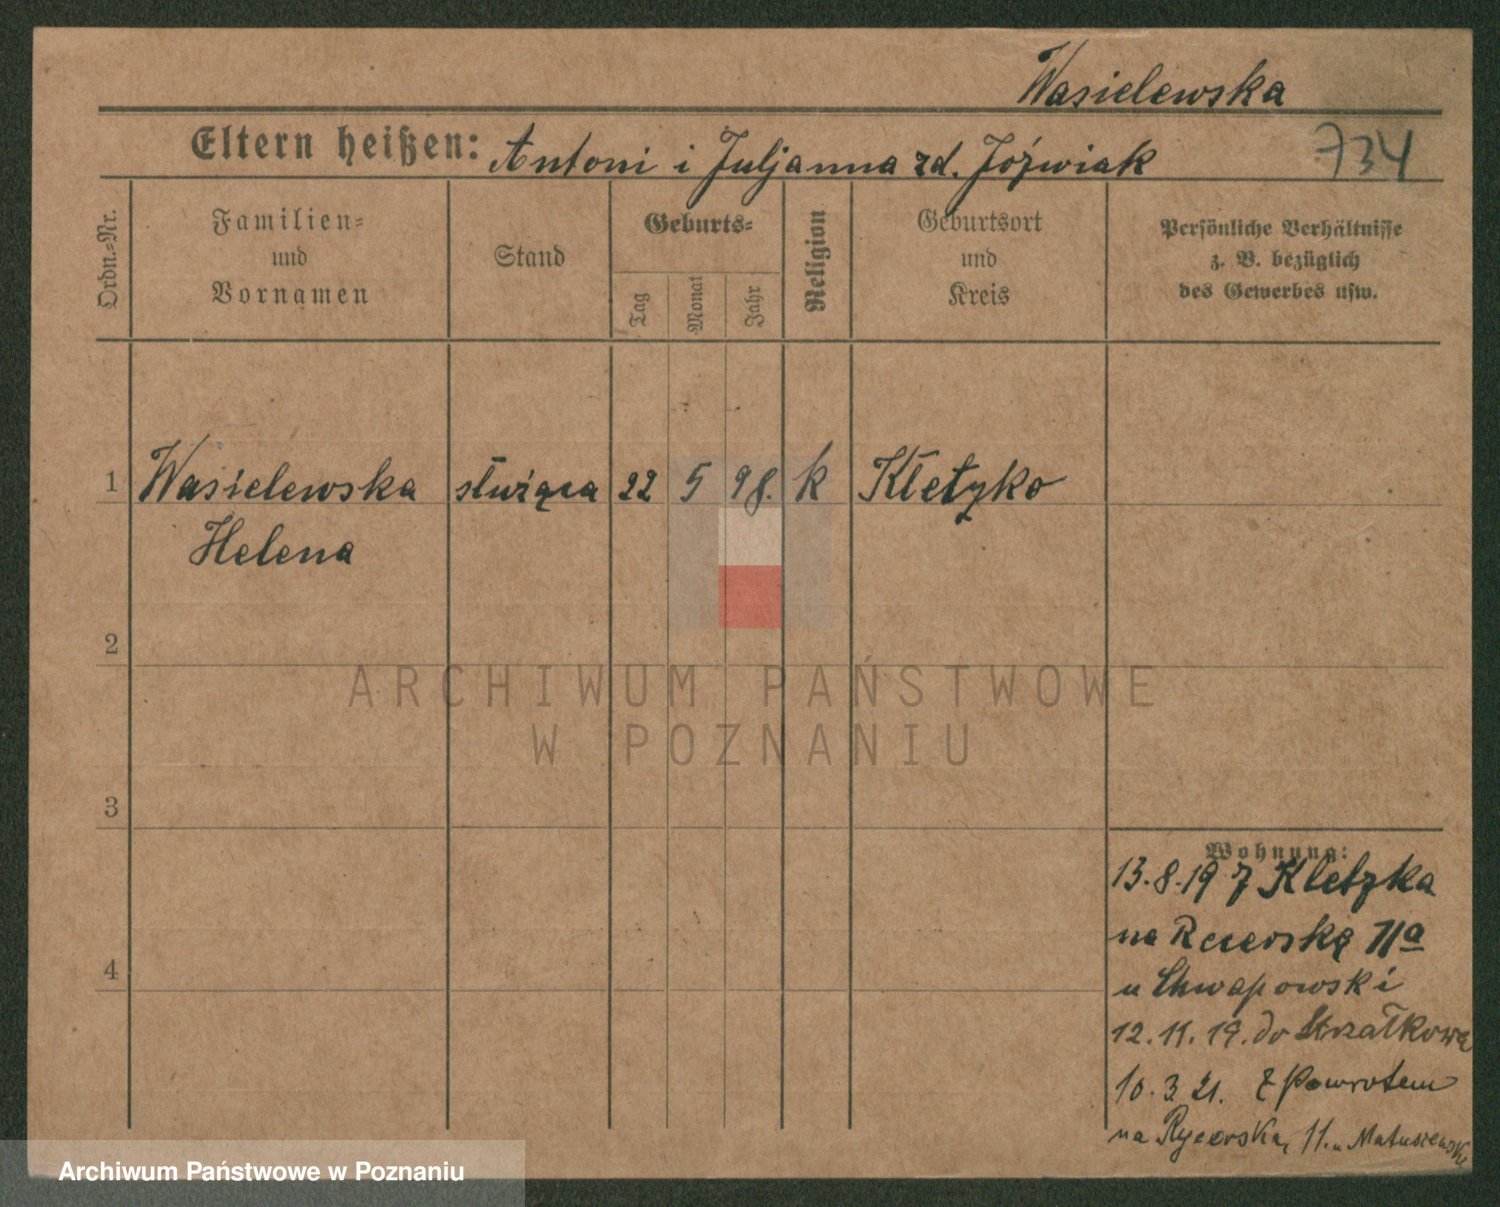 Wasielewska
Eltern heißen: Antoni i Juljanna zd. Jóźwiak
734
Ordn.-Nr.
Familien-
und
Vornamen
Stand
Geburts-
Tag
Monat
Jahr
Religion
Geburtsort
und
Kreis
Persönliche Verhältnisse
z. B. bezüglich
des Gewerbes usw.
1 Wasielewska służąca 22 5 98. k Kłetzko
Helena
2
3
4
Wohnung:
13.8.19 z Kletzka
na Rycerską 11a
u Chwapowski
12.11.19. do Strzałkowa
10.3.21. z powrotem
na Rycerska, 11. u Matuszewski
ARCHIWUM PAŃSTWOWE
W POZNANIU
Archiwum Państwowe w Poznaniu